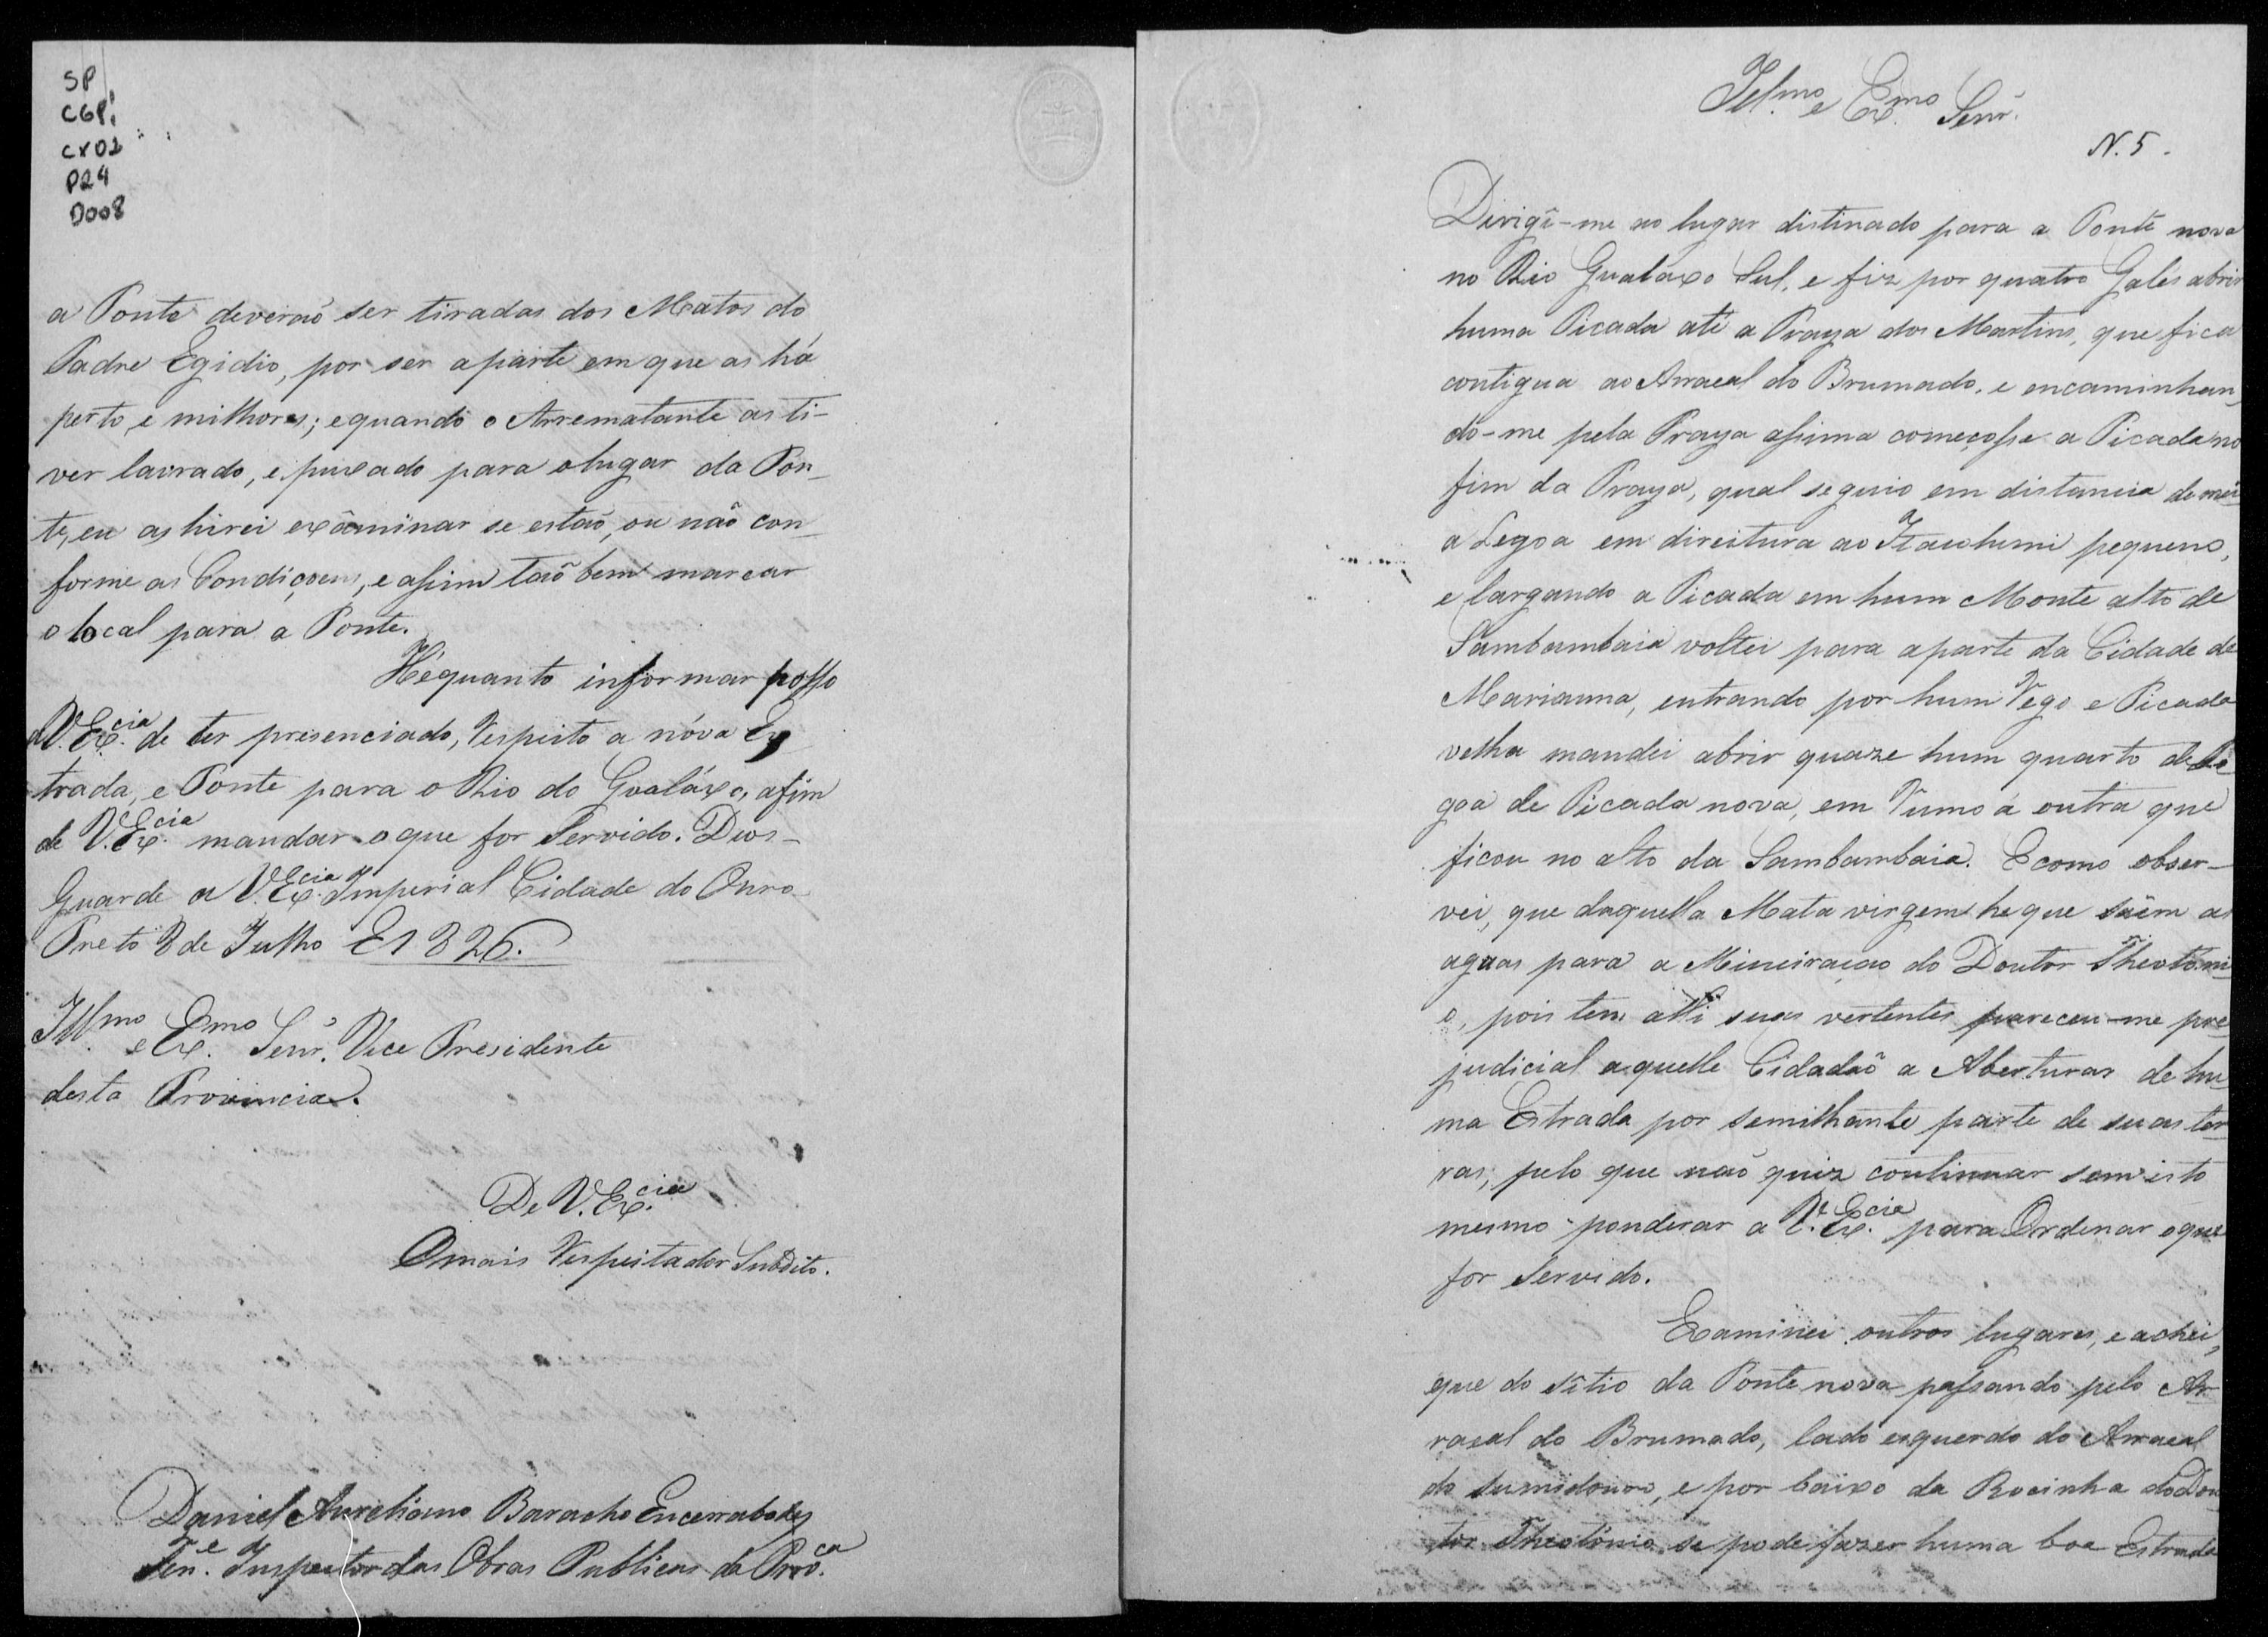 SP
CGP1
CX02
P24
D008
a Ponte deveraõ ser tiradas dos Matos do
Padre Egidio, por ser aparte em que as há
perto, e milhores; equando o Arrematante as ti-
ver lavrado, e puxado para olugar da Pon-
te, eu as hirei exâminar se estaõ, ou não con-
forme as Condiçoens, e assim taõ bem marcar
o local para a Ponte.
Hé quanto informar posso
a V. Ex.cia de ter presenciado, respeito a nóva Es
trada, e Ponte para o Rio do Gualáxo, afim
de V. Ex.cia mandar o que for Servido. Deos-
Guarde a V. Ex.cia Imperial Cidade do Ouro
Preto 8 de Julho E 1826.
Ill.mo e Ex.mo Senr. Vice Presidente
desta Provincia.
De V. Ex.cia
O mais respeitador Subdito.
Daniel Aureliano Baracho Encerrabodes
Ten.e Inspector das Obras Publicas da Prov.ca
Ill.mo e Ex.mo Senr.
N. 5.
Dirigî-me ao lugar distinado para a Ponte nova
no Rio Gualáxo Sul, e fiz por quatro Galés abrir
huma Picada até a Praya dos Martins, que fica
contigua ao Arraeal do Brumado, e encaminhan
do-me pela Praya assima começosse a Picada no
fim da Praya, qual seguio em distancia de mei
a Legoa em direitura ao Itacolumi pequeno,
e largando a Picada em hum Monte alto de
Sambambaia voltei para aparte da Cidade de
Marianna, entrando por hum rego e Picada
velha mandei abrir quaze hum quarto de Le
goa de Picada nova, em rumo á outra que
ficou no alto da Sambambaia. E como obser-
vei, que daquella Mata virgem he que sáem as
agoas para a Mineiraçao do Doutor Theotoni
o, pois tem alli suas vertentes pareceu-me pre
judicial aquelle Cidadaõ a Aberturas de hu
ma Estrada por semilhante parte de suas ter
ras, pelo que naõ quiz continuar sem isto
mesmo ponderar a V. Ex.cia para Ordenar oque
for Servido.
Examinei outros lugares, e achei,
que do sîtio da Ponte nova passando pelo Ar
raeal do Brumado, lado esquerdo do Arraeal
do Sumidouro, e por baixo da Rocinha do Dou
tor Theotonio se pode fazer huma boa Estrada